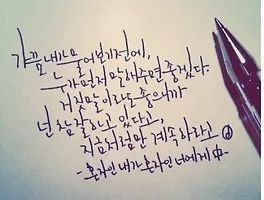 가끔 내가 물어보기 전에,
누가 먼저 말해주면 좋겠다.
거짓말이라도 좋으니까
넌 참 잘하고 있다고,
지금처럼만 계속하라고
- 혼자인 내가 혼자인 너에게 中 -